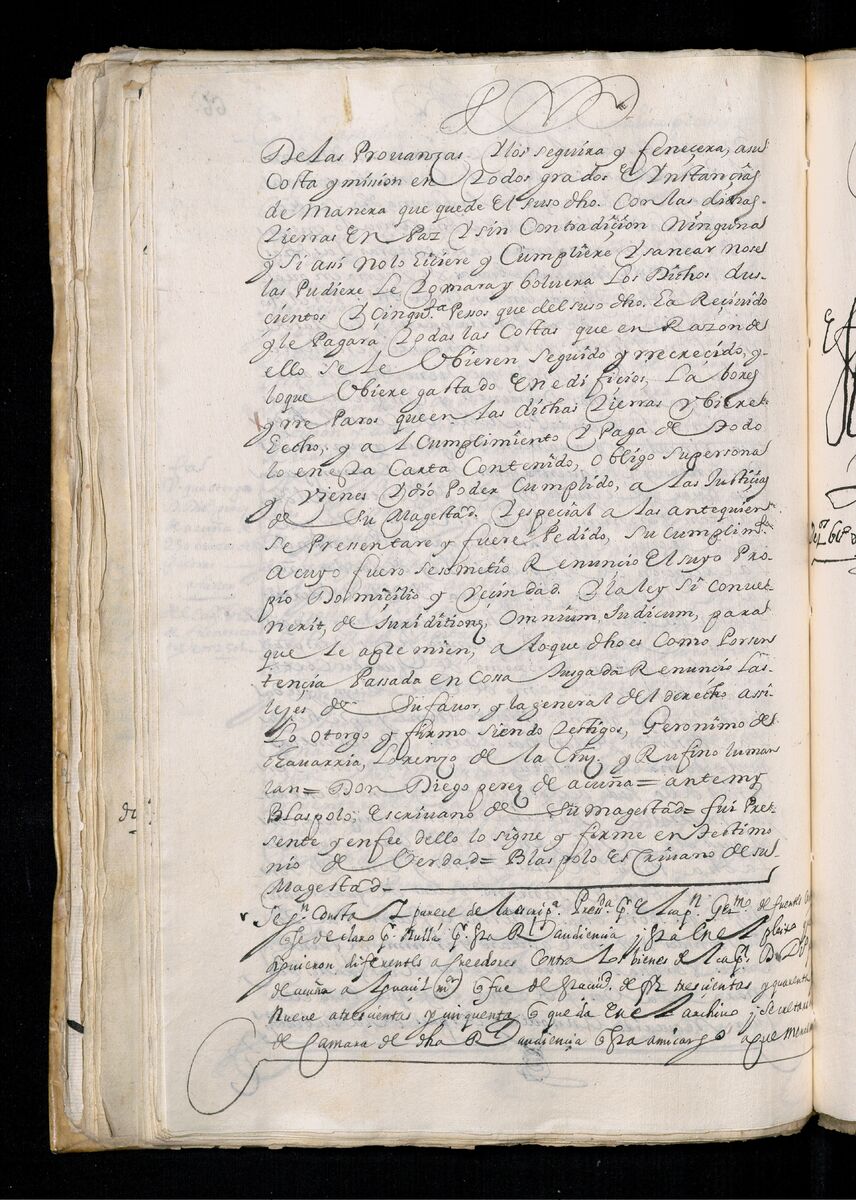 De las Provanzas Y los seguira y fenecera, a su
Costa y mision en Todos grados E Ynstançias
de Manera que quede El suso dho. Con las dichas
Tierras En Paz Y sin Contradiçion Ninguna
y Si asi no lo Eiciere y Cumpliere Y sanear no se
las Pudiere Le Tomara y bolvera Los Dichos dus-
cientos Y Cinqu.ta Pessos que del suso dho. Ea Reciuido
y le Pagara Todas las Costas que en Razon de
ello se le Obieren Seguido y rrecrecido, y
lo que Obiere gastado En edificios, Labores
y rreparos que en las dichas Tierras Vbiere
Eecho, y a el Cumplimiento Y Paga de Todo
lo en esta Carta Contenido, Obligo su persona
y Vienes Y dio Poder Cumplido, a las Justiçias
de Su Magestad Y especial a las ante quien
Se Pressentare y fuere Pedido, su cumplim.to
A cuyo fuero se sometio Renuncio El suyo Pro-
pio Domicilio y Vecindad Y la ley Si convet-
nerit, de Juriditione, Omnium, Iudicum, para
que le apremien, a lo que dho es Como Por sen
tençia Passada en Cossa Jusgada Renuncio Las
lejes de Su favor, y la general del derecho assi
Lo otorgo y firmo siendo Testigos, Geronimo de
Chavarria, Lorenzo de la Cruz, y Rufino luman
lan= Don Diego perez de acuña= ante my
Blas polo, Escrivano de Su Magestad= fui Pre-
sente y en fee dello lo signe y firme en Testimo
nio de Verdad= Blas polo Escrivano de su
Magestad
Seg.n Consta Y parece de la escrip.a Press.da q. El cap.n Ger.mo de fuentes
que declaro q. Nulla q. esta R.l audiencia j esta en el pleito
siguieron diferentes acreedores Contra Los bienes del cap. D. D.o P.
de acuña Alguacil m.or que fue de esta ciud. de f. trescientas y quarenta
Nueve a trescientas y cinquenta que queda En el archivo j Secretaria
de Camara de dha R.l Audiencia que esta a mi cargo a que me